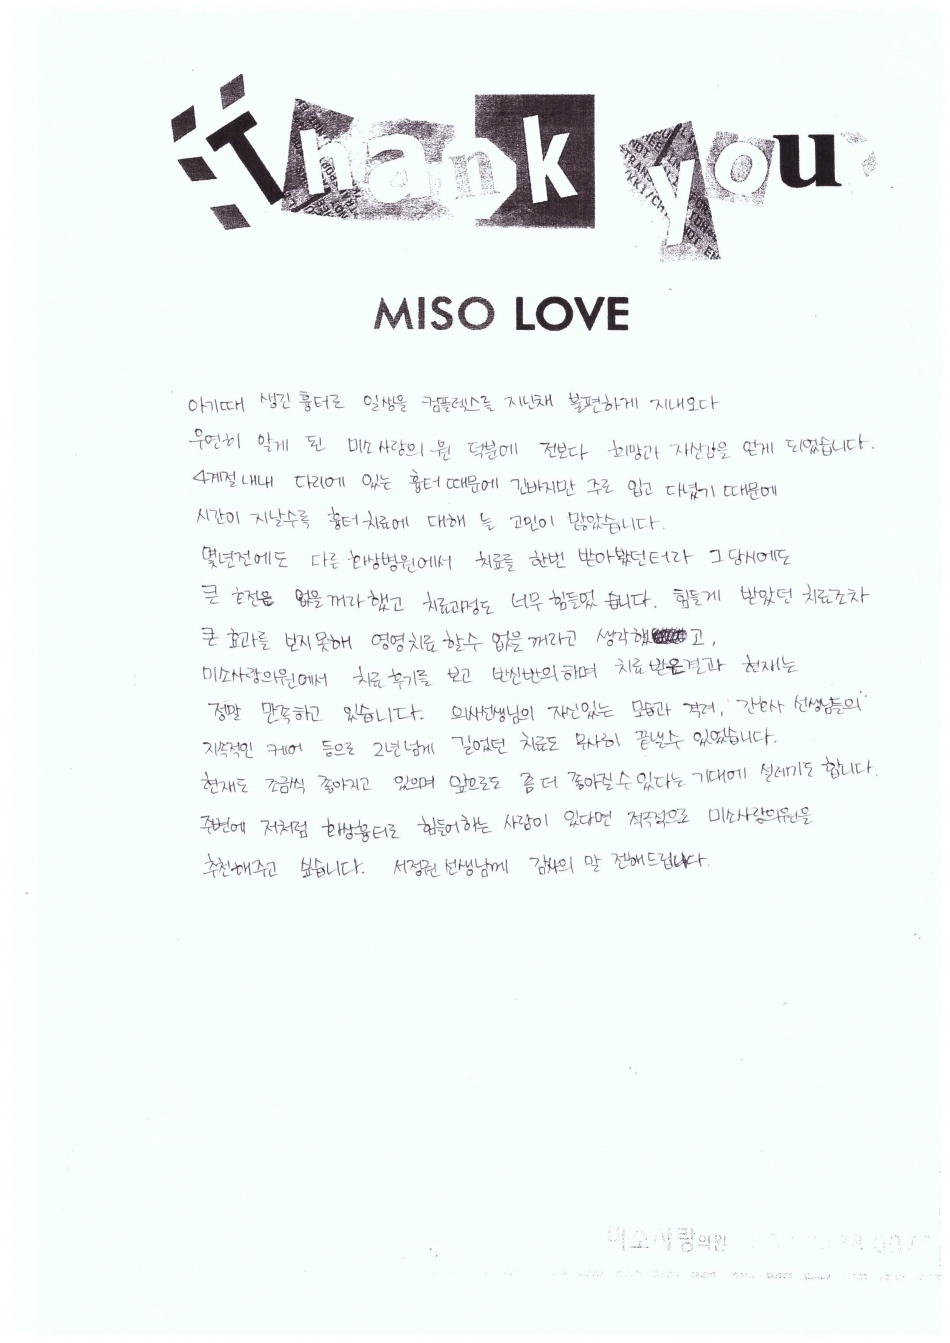 Thank you
MISO LOVE
아기때 생긴 흉터로 일생을 컴플렉스를 지닌채 불편하게 지내오다
우연히 알게 된 미소사랑의원 덕분에 전보다 희망과 자신감을 얻게 되었습니다.
4계절내내 다리에 있는 흉터때문에 긴바지만 주로 입고 다녔기 때문에
시간이 지날수록 흉터치료에 대해 늘 고민이 많았습니다.
몇년전에도 다른 화상병원에서 치료를 한번 받아봤던터라 그 당시에도
큰 호전은 없을꺼라 했고 치료과정도 너무 힘들었습니다. 힘들게 받았던 치료조차
큰 효과를 보지못해 영영치료 할수 없을꺼라고 생각했고,
미소사랑의원에서 치료후기를 보고 반신반의하며 치료받은결과 현재는
정말 만족하고 있습니다. 의사선생님의 자신있는 모습과 격려, 간호사 선생님들의
지속적인 케어 등으로 2년넘게 길었던 치료도 무사히 끝낼수 있었습니다.
현재도 조금씩 좋아지고 있으며 앞으로도 좀 더 좋아질수있다는 기대에 설레기도 합니다.
주변에 저처럼 화상흉터로 힘들어하는 사람이 있다면 적극적으로 미소사랑의원을
추천해주고 싶습니다. 서정권선생님께 감사의 말 전해드립니다.
미소사랑의원